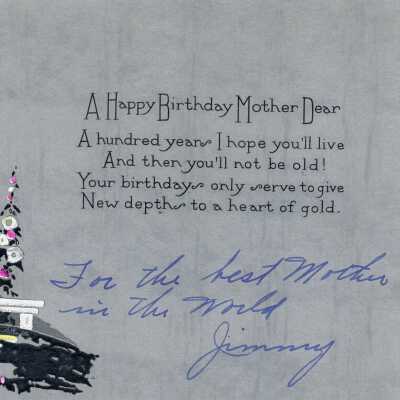 A Happy Birthday Mother Dear
A hundred years I hope you'll live
And then you'll not be old!
Your birthdays only serve to give
New depths to a heart of gold.
For the best Mother
in the World
Jimmy